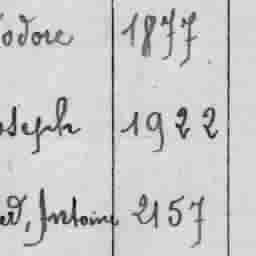 odore 1877
oseph 1922
ed, Antoine 2157